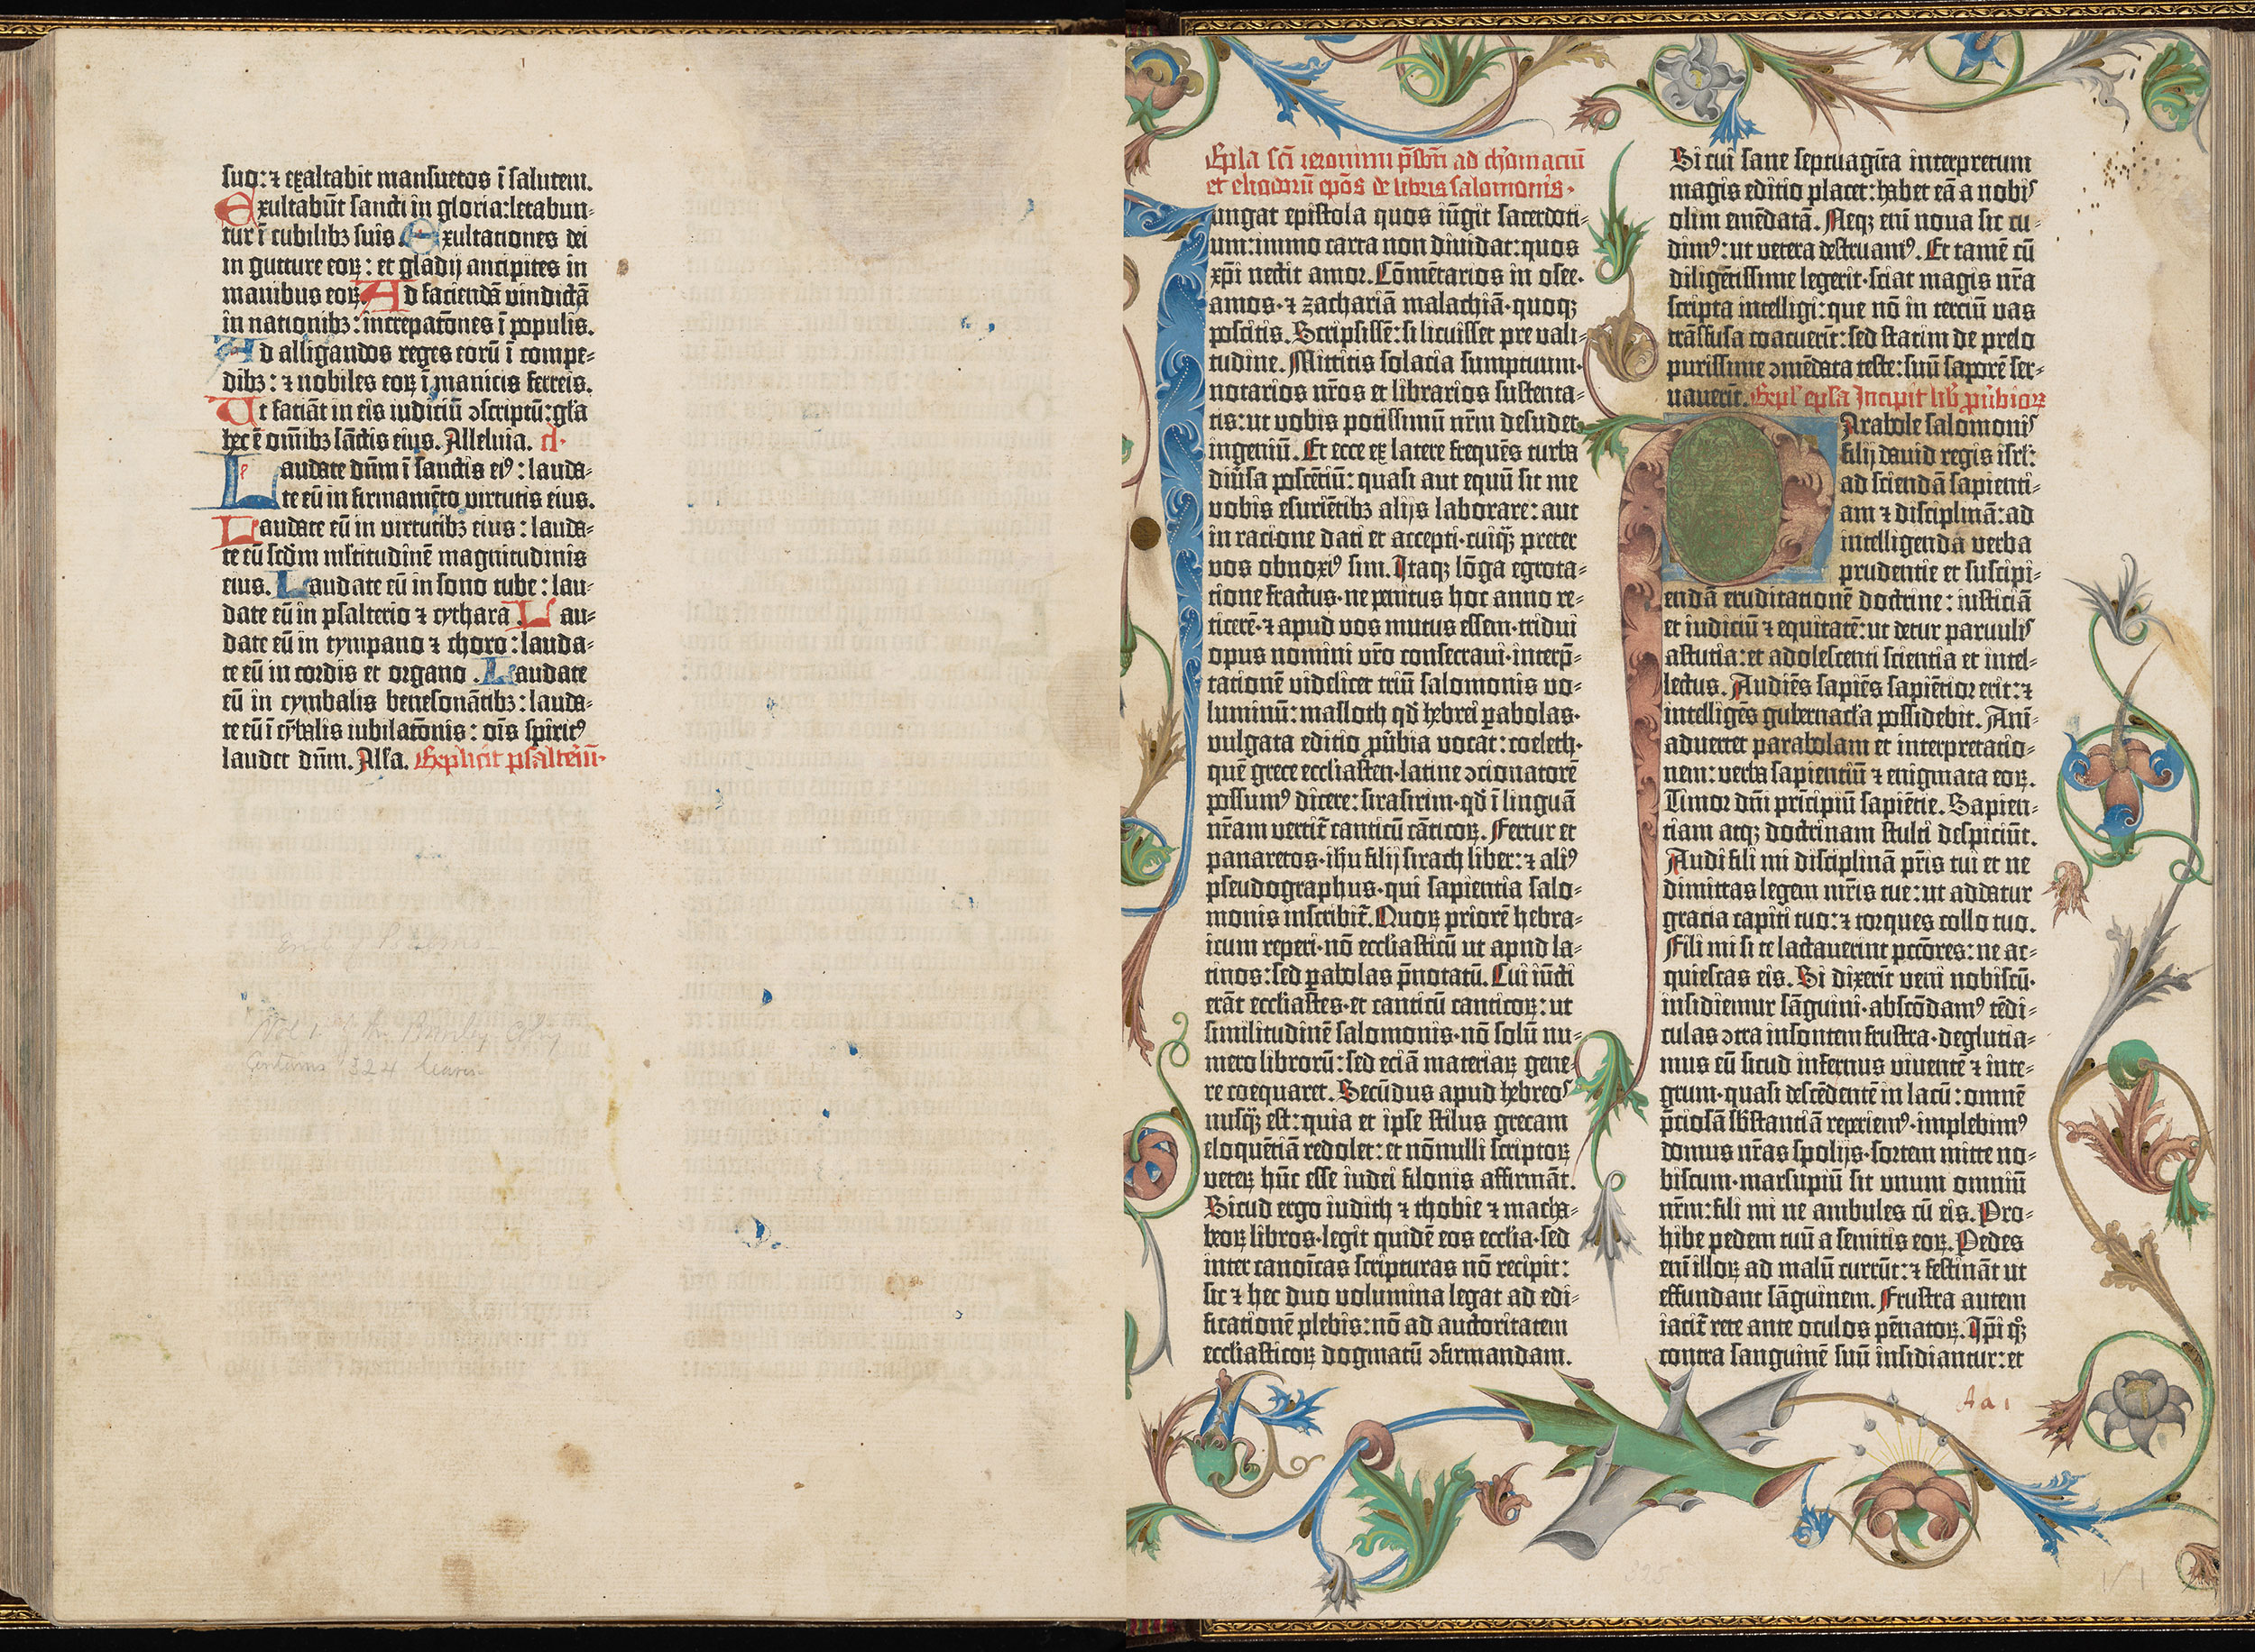 suo: ⁊ exaltabit mansuetos ī salutem.
Exultabūt sancti in gloria: letabun-
tur ī cubilibꝫ suis Exultationes dei
in gutture eoꝝ: et gladij ancipites in
manibus eoꝝ Ad faciendā vindictā
in nationibꝫ: increpatōnes ī populis.
Ad alligandos reges eorū ī compe-
dibꝫ: ⁊ nobiles eoꝝ ī manicis ferreis.
Ut faciāt in eis iudiciū ↄscriptū: gl̄a
hec ē om̄ibꝫ sāctis eius. Alleluia. cl.
Laudate dn̄m ī sanctis eiꝰ: lauda-
te eū in firmamēto virtutis eius.
Laudate eū in virtutibꝫ eius: lauda-
te eū scd̄m mltitudinē magnitudinis
eius. Laudate eū in sono tube: lau-
date eū in psalterio ⁊ cythara Lau-
date eū in tympano ⁊ choro: lauda-
te eū in cordis et organo. Laudate
eū in cymbalis benesonātibꝫ: lauda-
te eū ī cȳbalis iubilatōnis: oīs spiritꝰ
laudet dn̄m. Alla. Explicit psalteriū.
end of Psalms
Vol 1 of the
Contains 324 leaves
Ep̄la sc̄i ieronimi p̄sbri ad chromaciū
et eliodorū ep̄os de libris salomonis.
Iungat epistola quos iūgit sacerdoti-
um: immo carta non diuidat: quos
xp̄i nectit amor. Cōmētarios in osee.
amos. ⁊ zachariā malachiā. quoqꝫ
poscitis. Scripsissē: si licuisset pre vali-
tudine. Mittitis solacia sumptuum.
notarios nr̄os et librarios sustenta-
tis: ut vobis potissimū nr̄m desudet
ingeniū. Et ecce ex latere frequēs turba
diūsa poscētiū: quasi aut equū sit me
vobis esuriētibꝫ alijs laborare: aut
in racione dati et accepti. cuiq̄ preter
vos obnoxiꝰ sim. Itaqꝫ lōga egrota-
tione fractus. ne penitus hoc anno re-
ticerē. ⁊ apud vos mutus essem. tridui
opus nomini vr̄o consecraui. interp̄-
tationē videlicet triū salomonis vo-
luminū: masloth qd̄ hebrei ꝑabolas.
vulgata editio ꝓūbia vocat: coeleth.
quē grece ecclīasten. latine ↄcionatorē
possumꝰ dicere: sirasirim. qd̄ ī linguā
nr̄am vertit̄ canticū cāticoꝝ. Fertur et
panaretos. ih̄u filij sirach liber: ⁊ aliꝰ
pseudographus. qui sapientia salo-
monis inscribit̄. Quoꝝ priorē hebra-
icum reperi. nō ecclīasticū ut apud la-
tinos: sed ꝑabolas p̄notatū. Cui iūcti
erāt ecclīastes. et canticū canticoꝝ: ut
similitudinē salomonis. nō solū nu-
mero librorū: sed eciā materiaꝝ gene-
re coequaret. Secūdus apud hebreos
nusq̄ est: quia et ipse stilus grecam
eloquētiā redolet: et nōnulli scriptoꝝ
veteꝝ hūc esse iudei filonis affirmāt.
Sicud ergo iudith ⁊ thobie ⁊ macha-
beoꝝ libros. legit quidē eos ecclīa. sed
inter canoīcas scripturas nō recipit:
sic ⁊ hec duo volumina legat ad edi-
ficationē plebis: nō ad auctoritatem
ecclīasticoꝝ dogmatū ↄfirmandam.
Si cui sane septuagīta interpretum
magis editio placet: habet eā a nobis
olim emēdatā. Neqꝫ eni noua sic cu-
dimꝰ: ut vetera destruamꝰ. Et tamē cū
diligētissime legerit. sciat magis nr̄a
scripta intelligi: que nō in terciū vas
trāsfusa coacuerit: sed statim de prelo
purissime ↄmēdata teste: suū saporē ser-
uauerit. Expl̄ ep̄la Incipit lib̄ ꝓūbioꝝ
Parabole salomonis
filij dauid regis isrl̄:
ad sciendā sapienti-
am ⁊ disciplinā: ad
intelligenda verba
prudentie et suscipi-
endā eruditationē doctrine: iusticiā
et iudiciū ⁊ equitatē: ut detur paruulis
astutia: et adolescenti scientia et intel-
lectus. Audiēs sapiēs sapiētior erit: ⁊
intelligēs gubernacl̄a possidebit. Ani-
aduertet parabolam et interpretatio-
nem: verba sapientiū ⁊ enigmata eoꝝ.
Timor dn̄i prīcipiū sapiētie. Sapien-
tiam atqꝫ doctrinam stulti despiciūt.
Audi fili mi disciplinā pr̄is tui et ne
dimittas legem mr̄is tue: ut addatur
gracia capiti tuo: ⁊ torques collo tuo.
Fili mi si te lactauerint pctōres: ne ac-
quiescas eis. Si dixerīt veni nobiscū.
insidiemur sāguini. abscōdamꝰ tēdi-
culas ↄtra insontem frustra. deglutia-
mus eū sicud infernus viuentē ⁊ inte-
grum. quasi descēdentē in lacū: omnē
p̄ciosā sb̄stantiā reperiemꝰ. implebimꝰ
domus nr̄as spolijs. sortem mitte no-
biscum. marsupiū sit vnum omniū
nr̄m: fili mi ne ambules cū eis. Pro-
hibe pedem tuū a semitis eoꝝ. Pedes
eni illoꝝ ad malū currūt: ⁊ festināt ut
effundant sāguinem. Frustra autem
iacit̄ rete ante oculos pēnatoꝝ. Ip̄i qꝫ
contra sanguinē suū insidiantur: et
Aa1
325
1/1